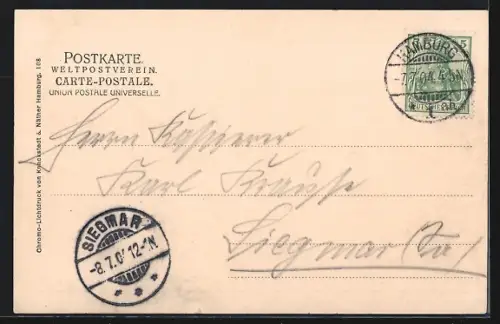 POSTKARTE.
WELTPOSTVEREIN.
CARTE-POSTALE.
UNION POSTALE UNIVERSELLE.
HAMBURG
-7.7.04. 4-5N
5
Herrn Kassierer
Karl Krause
Siegmar (Sa)
SIEGMAR
-8.7.0 12-1N
Chromo-Lichtdruck von Knackstedt & Näther Hamburg. 108